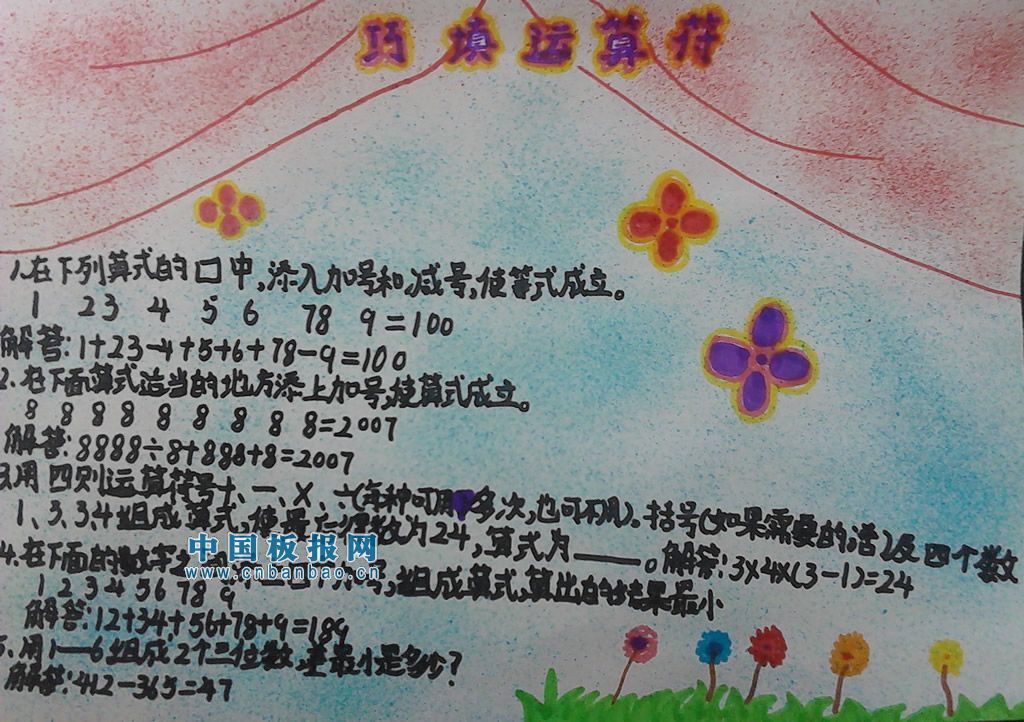 巧填运算符
1.在下列算式的□中,添入加号和减号,使等式成立。
1 23 4 5 6 78 9=100
解答:1+23-4+5+6+78-9=100
2.在下面算式适当的地方添上加号,使算式成立。
8 8 8 8 8 8 8 8 8=2007
解答:8888÷8+888+8=2007
3.用四则运算符号+、一、×、÷(每种可用多次,也可不用)、括号(如果需要的话)及四个数
1、3、3、4组成算式,使最后得数为24,算式为____。解答:3×4×(3-1)=24
4.在下面的数字之间 号,组成算式,算出的结果最小
1 2 3 4 5 6 7 8 9
解答:12+34+56+78+9=189
5、用1—6组成2个三位数,差最小是多少?
解答:412-365=47
中国板报网
www.cnbanbao.cn